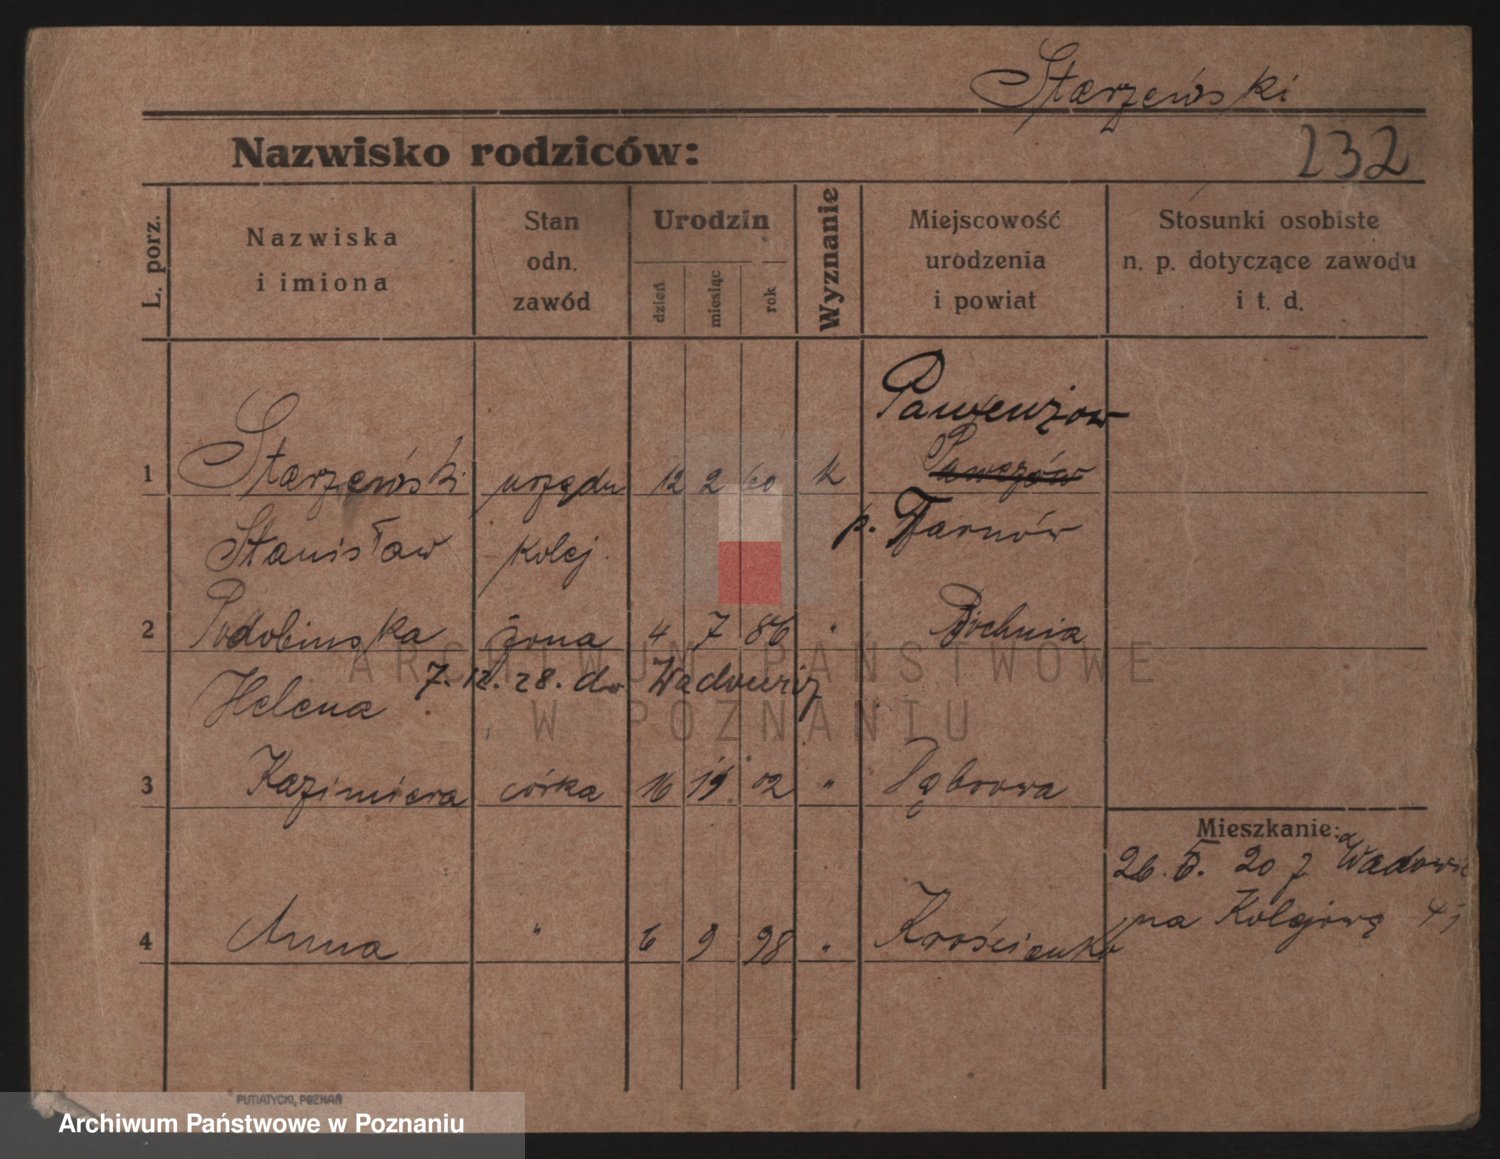 Starzewski
Nazwisko rodziców:
232
L. porz.
Nazwiska
i imiona
Stan
odn.
zawód
Urodzin
dzień
miesiąc
rok
Wyznanie
Miejscowość
urodzenia
i powiat
Stosunki osobiste
n. p. dotyczące zawodu
i t. d.
1 Starzewski urzędn 12 2 60 k
Stanisław kolej. p. Tarnów
2 Podobinska żona 4 7 86 " Bochnia
Helena 7. 12. 28. do
3 Kazimiera córka 16 02 " Dąbrowa
Mieszkanie:
26. 20 z
4 Anna " 6 9 98 " Krościenko
na Kolejową
ARCHIWUM PAŃSTWOWE
W POZNANIU
PUTIATYCKI, POZNAŃ
Archiwum Państwowe w Poznaniu